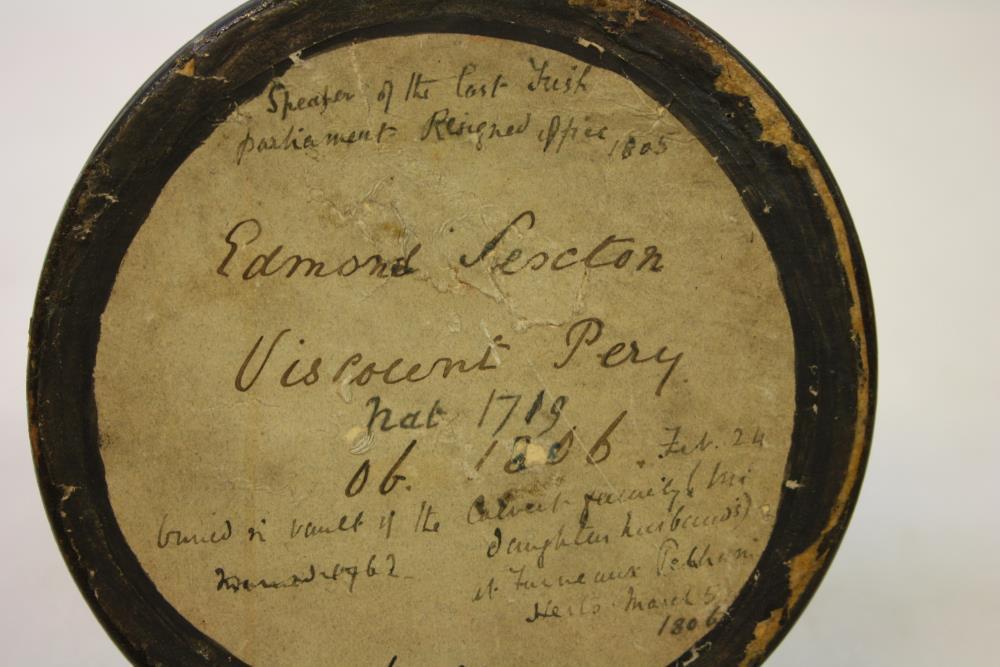 Speaker of the last Irish
parliament Resigned office 1805
Edmond Sexton
Viscount Pery
Nat 1719
Ob. 1806. Feb. 24
buried in vault of the Calvert family (his
daughters husbands)
1762 at Furneaux Pelham
Herts March 5
1806